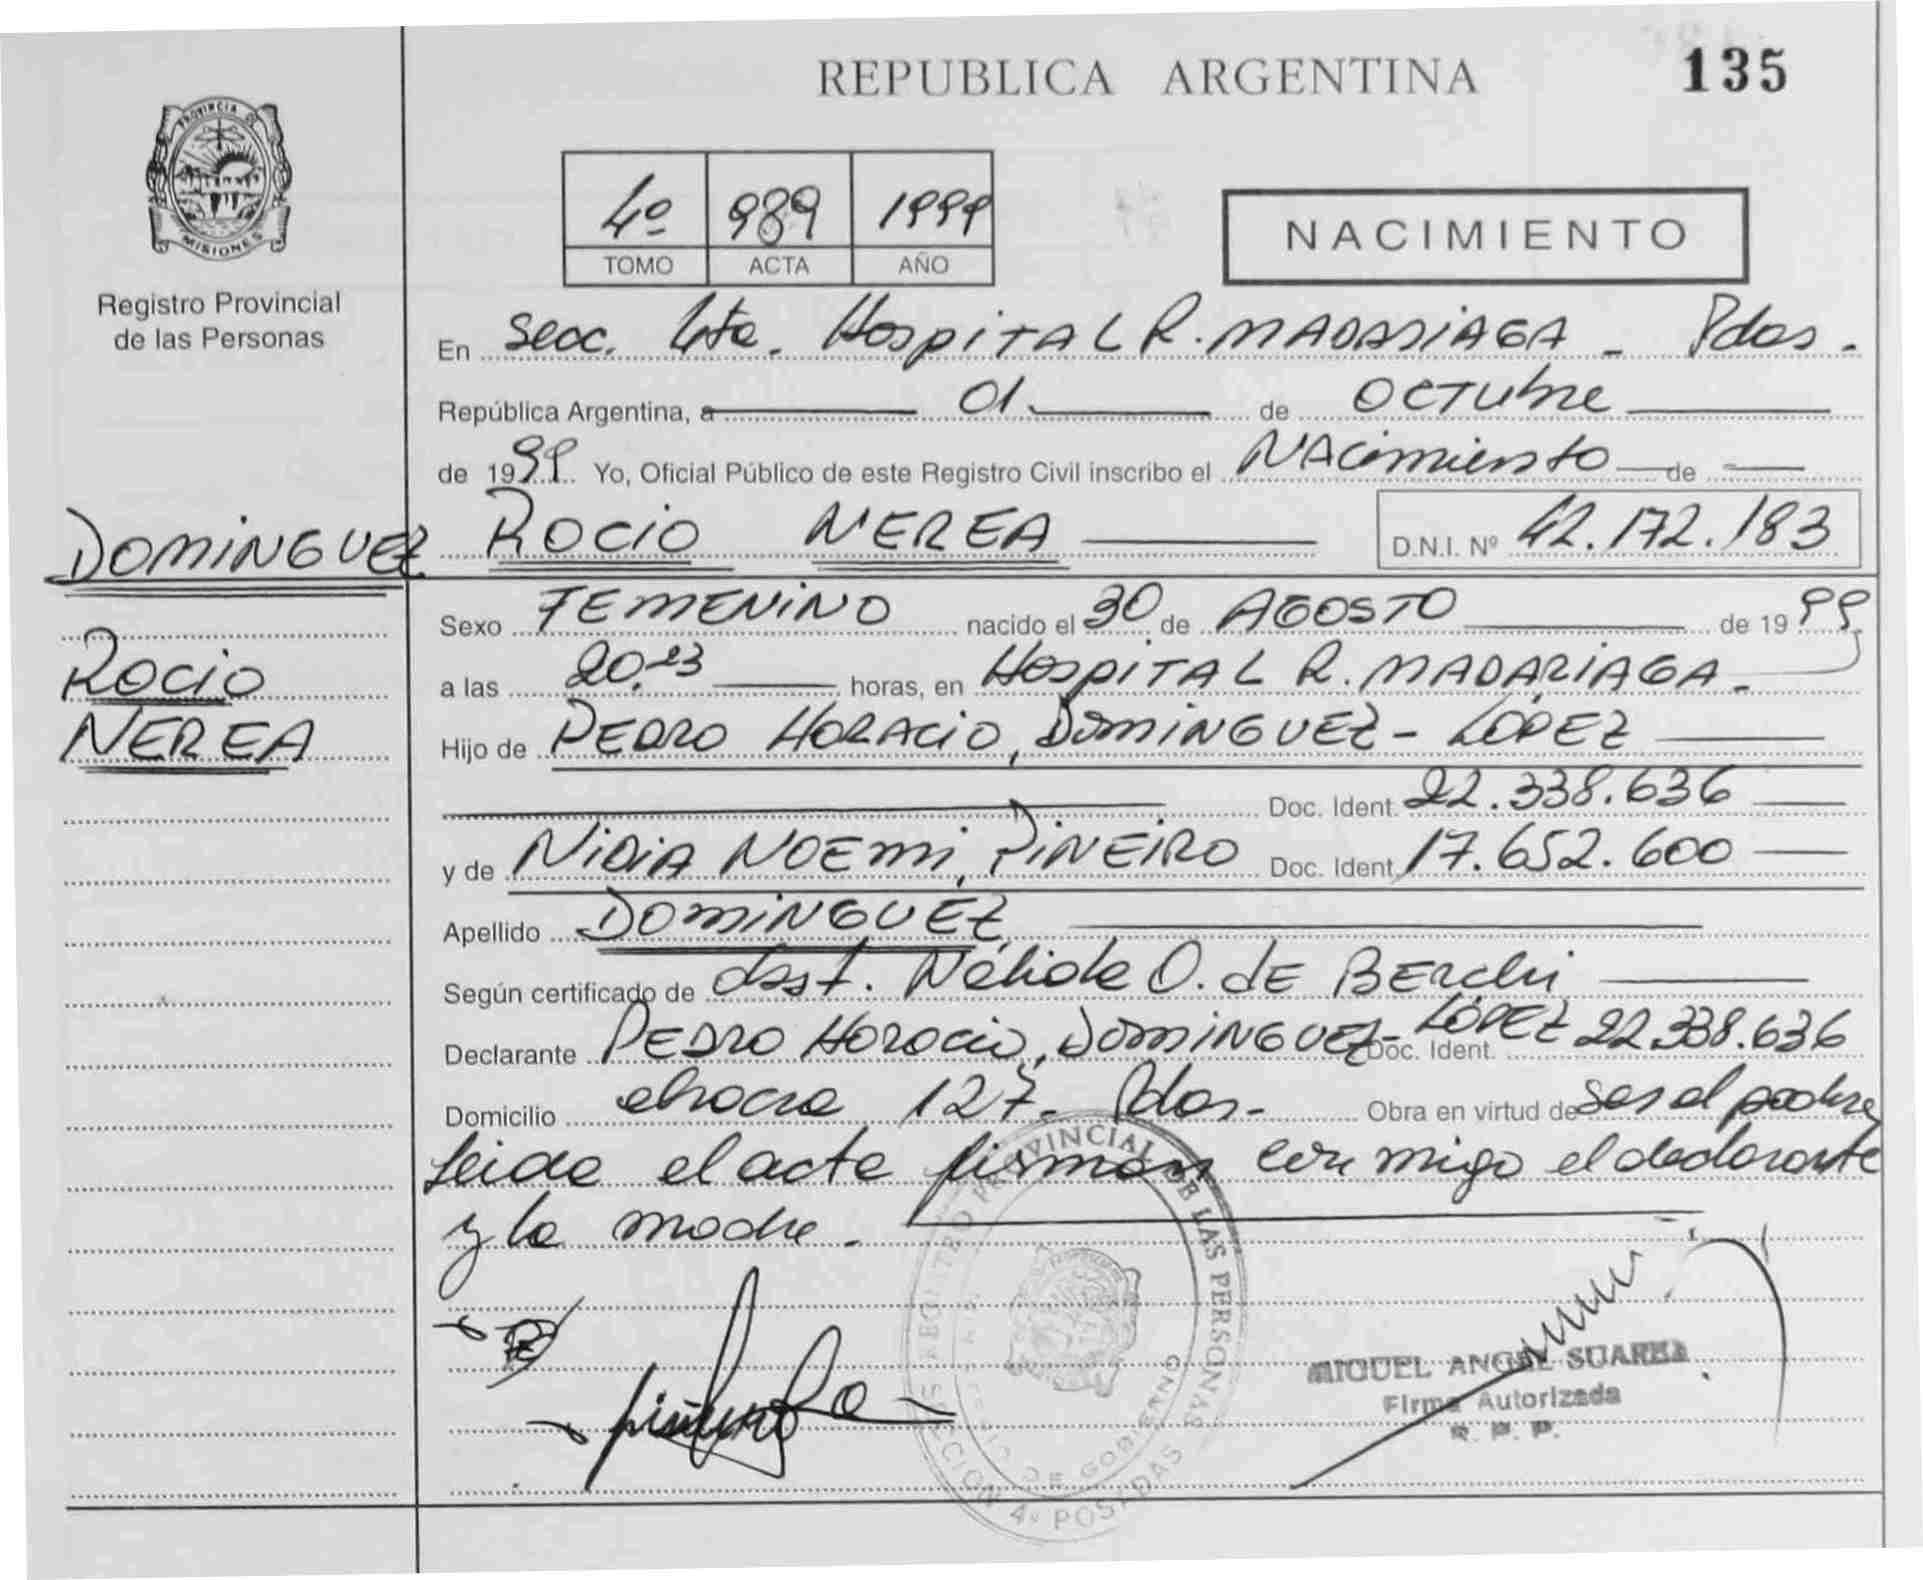 REPUBLICA ARGENTINA
135
PROVINCIA DE
MISIONES
Registro Provincial
de las Personas
4º 989 1999
TOMO ACTA AÑO
NACIMIENTO
En Secc. 4ta. Hospital R. MADARIAGA - Pdas.
República Argentina, a 01 de Octubre
de 1999 Yo, Oficial Público de este Registro Civil inscribo el NAcimiento de
ROCIO NEREA D.N.I. Nº 42.172.183
DOMINGUEZ
ROCIO
NEREA
Sexo FEMENINO nacido el 30 de AGOSTO de 1999
a las 20,23 horas, en HOSPITAL R. MADARIAGA.
Hijo de PEDRO HORACIO, DOMINGUEZ - LOPEZ
Doc. Ident. 22.338.636
y de NIDIA NOEMI, PIÑEIRO Doc. Ident. 17.652.600
Apellido DOMINGUEZ
Según certificado de Obst. Nélida O. dE BERchi
Declarante PEDRO HORACIO, DOMINGUEZ- LÓPEZ Doc. Ident. 22.338.636
Domicilio 127- Pdas- Obra en virtud de ser el padre
Leida el acta firman conmigo el declarante
y la madre.
REGISTRO PROVINCIAL DE LAS PERSONAS
DE GOBIERNO
SECCION 4º POSADAS
MIGUEL ANGEL SUAREZ
Firma Autorizada
R. P. P.